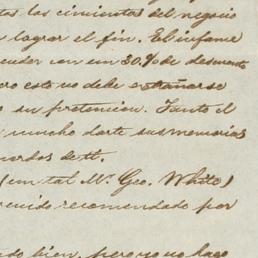 los cimientos del negocio
lograr el fin. El infame
con un 30% de descuento
esto no debe extrañarse
su protencion. Junto el
mucho darte sus memorias
(un tal Mr. Geo. White)
recomendado por
bien, pero yo no hago